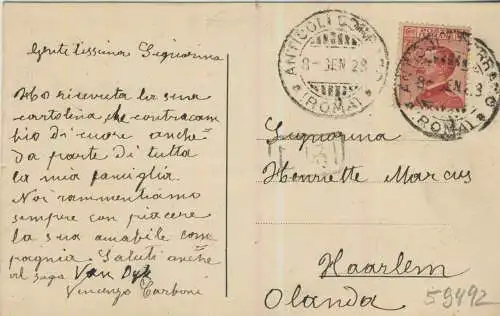 Gentilissima Signorina
Ho ricevuta la sua
cartolina che contracam
bio di cuore anche
da parte di tutta
la mia famiglia
Noi rammentiamo
sempre con piacere
la sua amabile com
pagnia. Saluti anche
al saga Van Dyk
Vincenzo Carboni
ANTICOLI CORRADO
8 - GEN 23
(ROMA)
ANTICOLI CORRADO
(ROMA)
Signorina
Henriette Marcus
Haarlem
Olanda
59492